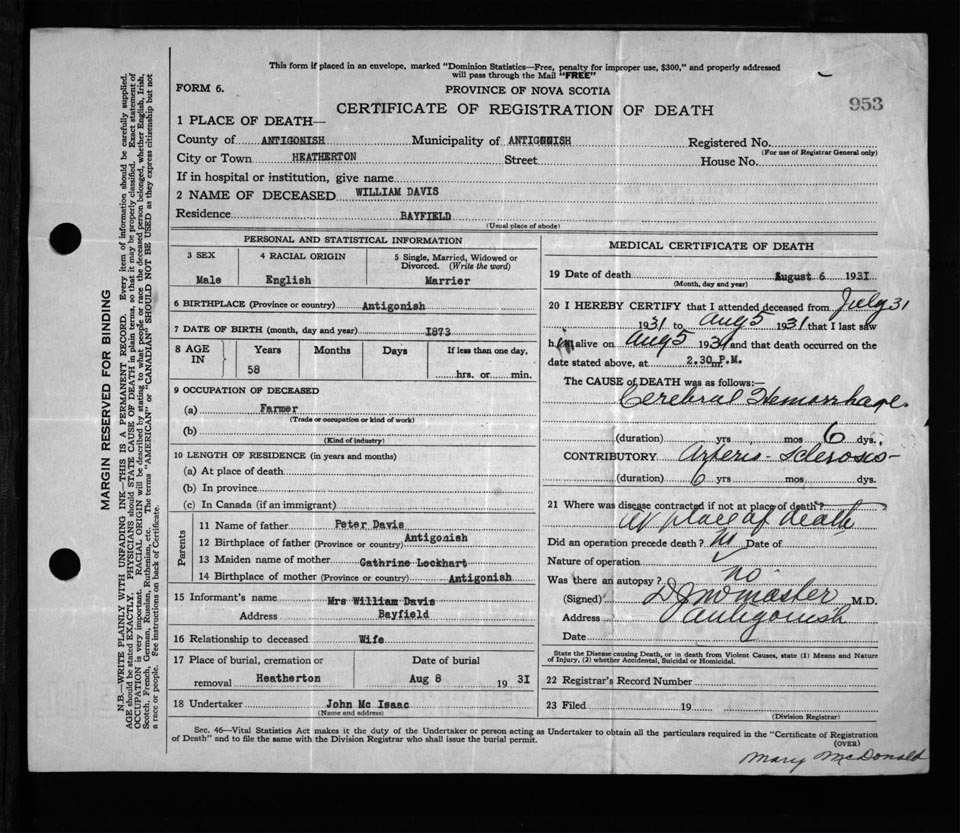 This form if placed in an envelope, marked "Dominion Statistics—Free, penalty for improper use, $300," and properly addressed
will pass through the Mail "FREE"
FORM 6.
PROVINCE OF NOVA SCOTIA
953
CERTIFICATE OF REGISTRATION OF DEATH
1 PLACE OF DEATH—
County of ANTIGONISH Municipality of ANTIGONISH Registered No.
(For use of Registrar General only)
City or Town HEATHERTON Street House No.
If in hospital or institution, give name
2 NAME OF DECEASED WILLIAM DAVIS
Residence BAYFIELD
(Usual place of abode)
PERSONAL AND STATISTICAL INFORMATION
3 SEX 4 RACIAL ORIGIN 5 Single, Married, Widowed or
Divorced. (Write the word)
Male English Marrier
6 BIRTHPLACE (Province or country) Antigonish
7 DATE OF BIRTH (month, day and year) 1873
8 AGE IN Years Months Days If less than one day,
58 hrs. or min.
9 OCCUPATION OF DECEASED
(a) Farmer
(Trade or occupation or kind of work)
(b)
(Kind of industry)
10 LENGTH OF RESIDENCE (in years and months)
(a) At place of death
(b) In province
(c) In Canada (if an immigrant)
Parents
11 Name of father Peter Davis
12 Birthplace of father (Province or country) Antigonish
13 Maiden name of mother Cathrine Lockhart
14 Birthplace of mother (Province or country) Antigonish
15 Informant's name Mrs William Davis
Address Bayfield
16 Relationship to deceased Wife
17 Place of burial, cremation or Date of burial
removal Heatherton Aug 8 1931
18 Undertaker John Mc Isaac
(Name and address)
MEDICAL CERTIFICATE OF DEATH
19 Date of death August 6 1931
(Month, day and year)
20 I HEREBY CERTIFY that I attended deceased from July 31
1931 to Aug 5 1931 that I last saw
h im alive on Aug 5 1931 and that death occurred on the
date stated above, at 2.30 P.M.
The CAUSE OF DEATH was as follows:—
Cerebral Hemorrhage.
(duration) yrs mos 6 dys.
CONTRIBUTORY Arterio-Sclerosis
(duration) 6 yrs mos dys.
21 Where was disease contracted if not at place of death?
at place of death
Did an operation precede death? No Date of
Nature of operation
Was there an autopsy? no
(Signed) M.D.
Address Antigonish
Date
State the Disease causing Death, or in death from Violent Causes, state (1) Means and Nature
of Injury, (2) whether Accidental, Suicidal or Homicidal.
22 Registrar's Record Number
23 Filed 19
(Division Registrar)
Sec. 46—Vital Statistics Act makes it the duty of the Undertaker or person acting as Undertaker to obtain all the particulars required in the "Certificate of Registration
of Death" and to file the same with the Division Registrar who shall issue the burial permit.
(OVER)
Mary McDonald
MARGIN RESERVED FOR BINDING
N.B.—WRITE PLAINLY WITH UNFADING INK—THIS IS A PERMANENT RECORD. Every item of information should be carefully supplied.
AGE should be stated EXACTLY. PHYSICIANS should STATE CAUSE OF DEATH in plain terms, so that it may be properly classified. Exact statement of
OCCUPATION is very important. RACIAL ORIGIN will be described by stating to what people or race the deceased person belonged, whether English, Irish,
Scotch, French, German, Russian, Ruthenian, etc. The terms "AMERICAN" or "CANADIAN" SHOULD NOT BE USED as they express citizenship but not
a race or people. See instructions on back of Certificate.